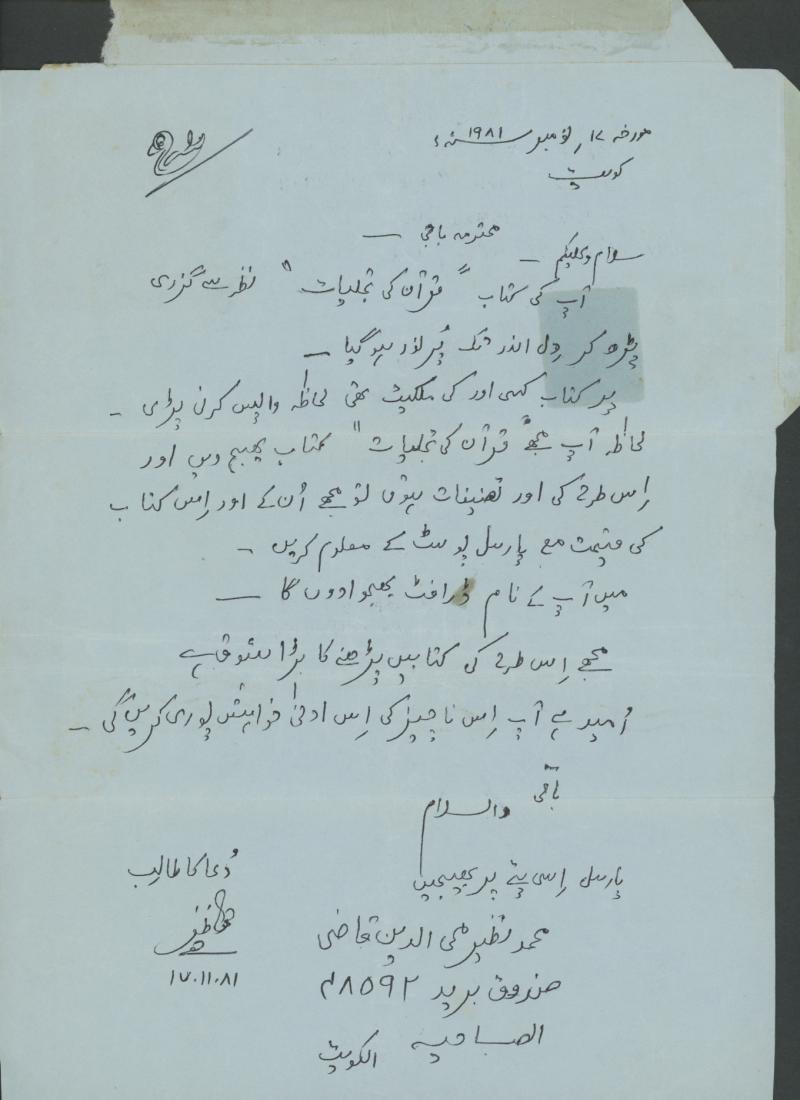 مورخہ ۱۷ ر نومبر ۱۹۸۱ سنہء
کویت
محترمہ باجی —
سلام وعلیکم —
آپ کی کتاب "قرآن کی تجلیات" نظر سے گزری
پڑھ کر دِل اندر تک پُر نور ہوگیا —
پر کتاب کسی اور کی ملکیت تھی لحاظہ واپس کرنی پڑی -
لحاظہ آپ مجھے "قرآن کی تجلیات" کتاب بھیج دیں اور
اِس طرح کی اور تصنیفات ہوں تو مجھے اُن کے اور اِس کتاب
کی قیمت مع پارسل پوسٹ کے معلوم کریں -
میں آپ کے نام ڈرافٹ بھجوادوں گا —
مجھے اِس طرح کی کتابیں پڑھنے کا بڑا شوق ہے
اُمید ہے آپ اِس ناچیز کی اِس ادنیٰ خواہش پوری کریں گی -
باقی والسلام
پارسل اِسی پتے پر بھیجیں
دُعا کا طالب
محمد نظیر محی الدین قاضی
صندوق برید ۴۸۵۹۲
۱۷.۱۱.۸۱
الصباحیہ الکویت